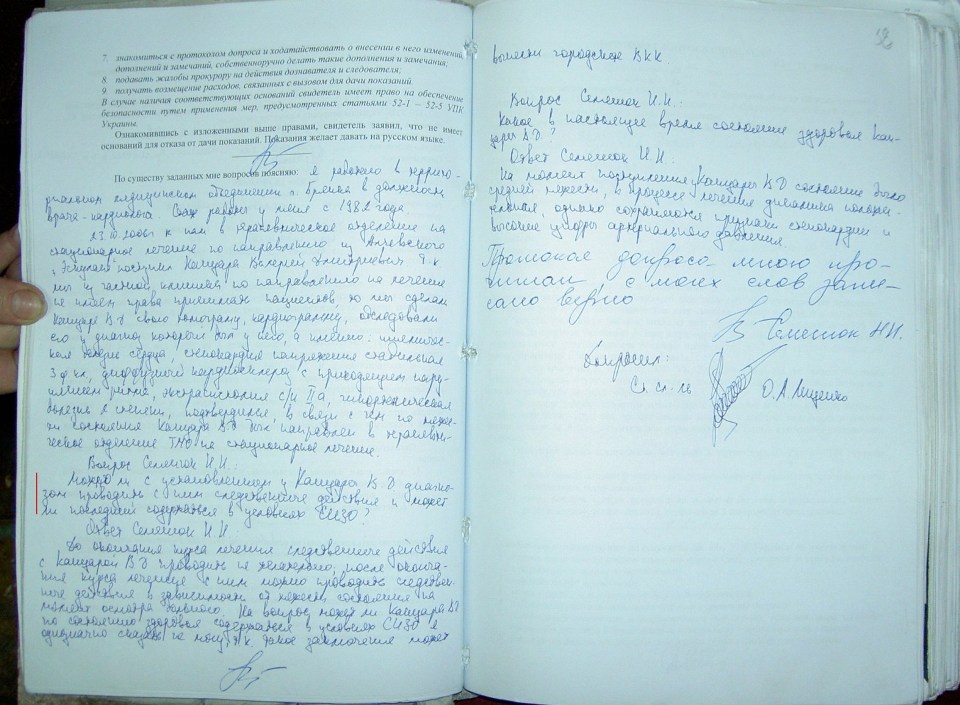 7. знакомиться с протоколом допроса и ходатайствовать о внесении в него изменений,
дополнений и замечаний, собственноручно делать такие дополнения и замечания;
8. подавать жалобы прокурору на действия дознавателя и следователя;
9. получать возмещение расходов, связанных с вызовом для дачи показаний.
В случае наличия соответствующих оснований свидетель имеет право на обеспечение
безопасности путем применения мер, предусмотренных статьями 52-1 – 52-5 УПК
Украины.
Ознакомившись с изложенными выше правами, свидетель заявил, что не имеет
оснований для отказа от дачи показаний. Показания желает давать на русском языке.
По существу заданных мне вопросов поясняю: я работаю в террито-
риальном медицинском объединении г. Брянка в должности
врача-кардиолога. Стаж работы у меня с 1982 года.
23.10.2006г к нам в терапевтическое отделение на
стационарное лечение по направлению из
поступил Кашуара Валерий Дмитриевич т.к
мы у частной клиники по направлению на лечение
не имеем права принимать пациентов, то мы сделали
Кашуаре ВД свою кардиограмму, обследовали
его и диагноз который был у него, а именно: ишемичес-
кая болезнь сердца, стенокардия напряжения стабильная
3 ф кл, диффузный кардиосклероз с преходящим нару-
шением ритма, экстрасистолия с/н IIа, гипертоническая
болезнь степени, подтвердился, в связи с чем по тяжес-
ти состояния Кашуара ВД был направлен в терапевти-
ческое отделение ТМО на стационарное лечение.
Вопрос Селешок Н.И.:
Можно ли с установленным у Кашуары ВД диагно-
зом проводить с ним следственные действия и может
ли последний содержаться в условиях СИЗО?
Ответ Селешок Н.И.
До окончания курса лечения следственные действия
с Кашуарой ВД проводить не желательно, после оконча-
ния курса лечения с ним можно проводить следствен-
ные действия в зависимости от тяжести состояния на
момент осмотра больного. На вопрос может ли Кашуара ВД
по состоянию здоровья содержаться в условиях СИЗО я
однозначно сказать не могу, т.к. такое заключение может
вынести городское ВКК
Вопрос Селешок Н.И.:
Какое в настоящее время состояние здоровья Каш-
уары ВД?
Ответ Селешок Н.И.
На момент поступления Кашуары ВД состояние было
средней тяжести, в процессе лечения динамика положи-
тельная, однако сохраняются признаки стенокардии и
высокие цифры артериального давления.
Протокол допроса мною про-
читан, с моих слов запи-
сано верно
Селешок Н.И.
Допросил:
Ст. сл-ль О.А. Лищенко